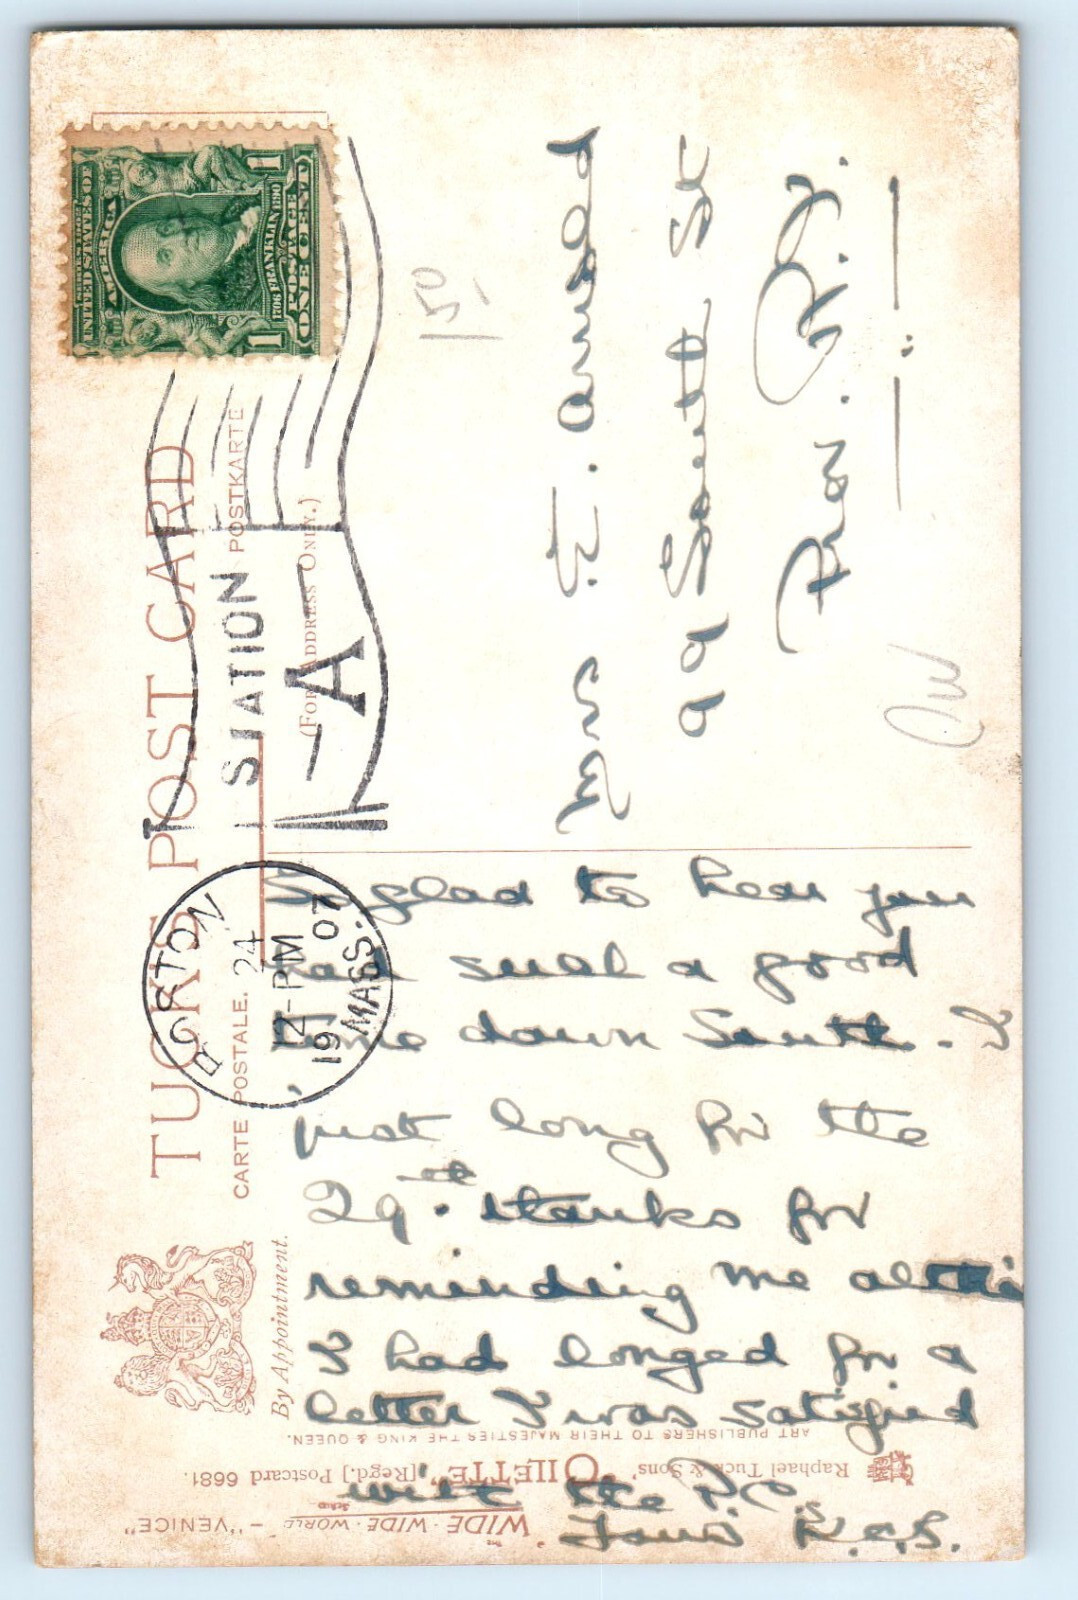 TUCK'S POST CARD
CARTE POSTALE. POSTKARTE
(FOR ADDRESS ONLY.)
By Appointment.
BOSTON
24
12-PM
1907
MASS.
STATION
A
SERIES 1902
UNITED STATES OF
AMERICA
1706 FRANKLIN 1790
POSTAGE
ONE CENT
1 1
150
Mrs E. Arnold
99 South St
Prov. R.I.
So glad to hear you
had such a good
time down South. I
just long for the
29th. thanks for
reminding me altho
I had longed for a
letter I was satisfied
with the P.C.
ART PUBLISHERS TO THEIR MAJESTIES THE KING & QUEEN.
Raphael Tuck & Sons' "OILETTE" [Regd.] Postcard 6681.
WIDE-WIDE-WORLD SERIES - "VENICE"